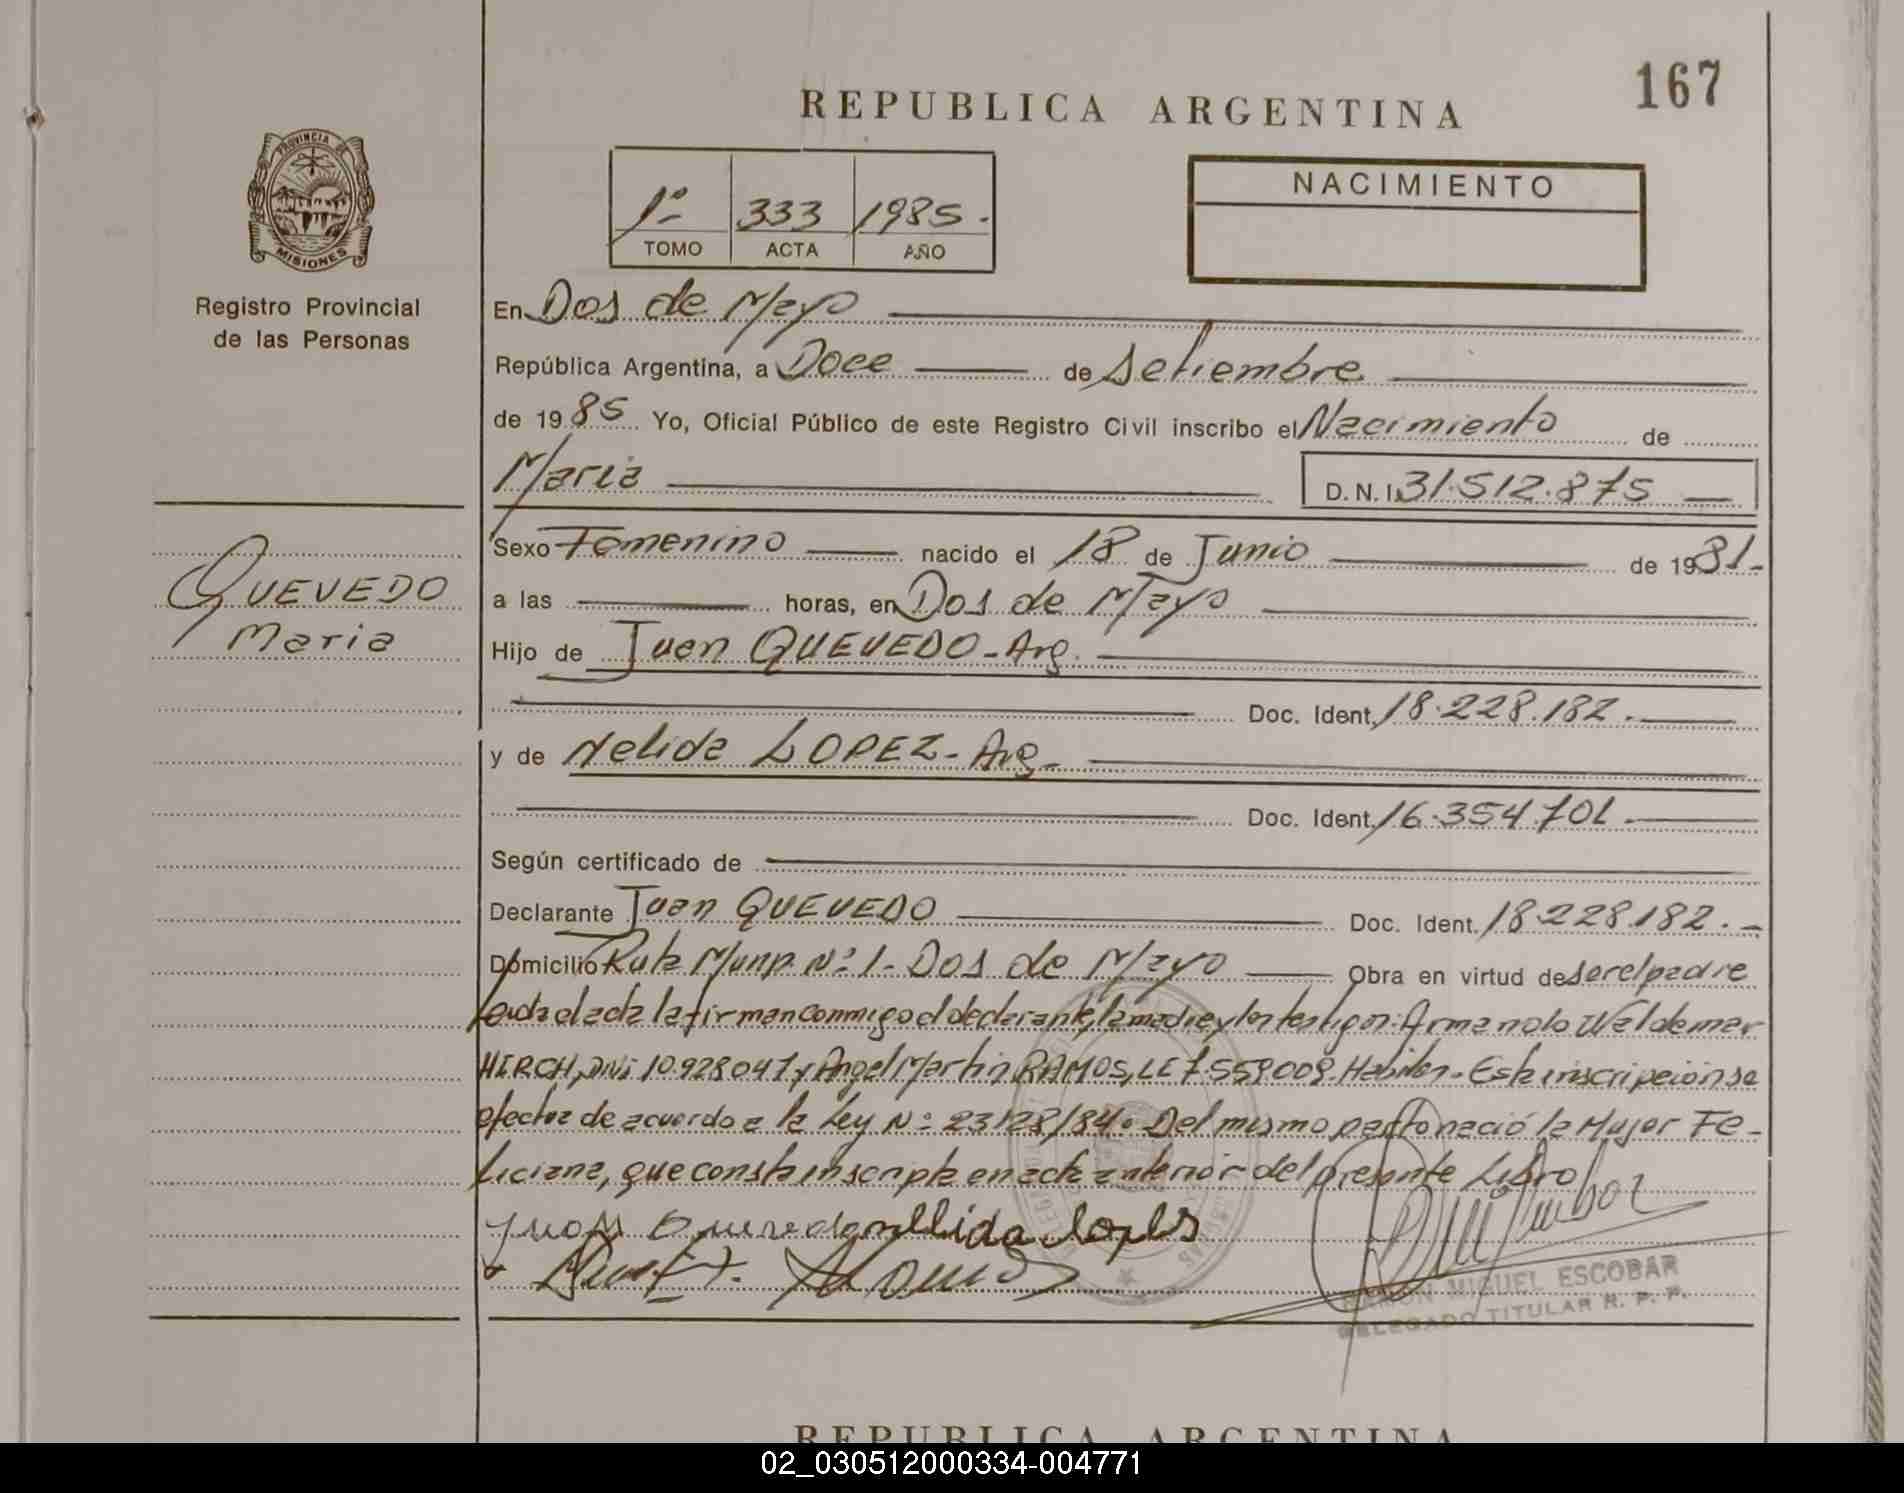 167
REPUBLICA ARGENTINA
PROVINCIA DE
MISIONES
Registro Provincial
de las Personas
1º 333 1985.
TOMO ACTA AÑO
NACIMIENTO
En Dos de Mayo
República Argentina, a Doce de Setiembre
de 1985 Yo, Oficial Público de este Registro Civil inscribo el Nacimiento de
Maria D.N.I. 31.512.875
Sexo Femenino nacido el 18 de Junio de 1981.
QUEVEDO
Maria
a las horas, en Dos de Mayo
Hijo de Juan QUEVEDO - Arg.
Doc. Ident. 18.228.182.
y de Nelida LOPEZ - Arg.
Doc. Ident. 16.354.701.
Según certificado de
Declarante Juan QUEVEDO Doc. Ident. 18.228.182.
Domicilio Ruta Munp. Nº 1 - Dos de Mayo Obra en virtud de ser el padre
Leida el acta la firman conmigo el declarante, la madre y los testigos: Armando Waldemar
HIRCH, DNI 10.928.047 y Angel Martin RAMOS, LE 7.559.009. Habiles. Esta inscripción se
efectua de acuerdo a la Ley Nº 23128/84. Del mismo parto nació la Mujer Fe-
liciana, que consta inscripta en acta anterior del presente Libro
Juan Quevedo nellida lopes
RAMON MIGUEL ESCOBAR
DELEGADO TITULAR R. P. P.
REPUBLICA ARGENTINA
02_030512000334-004771